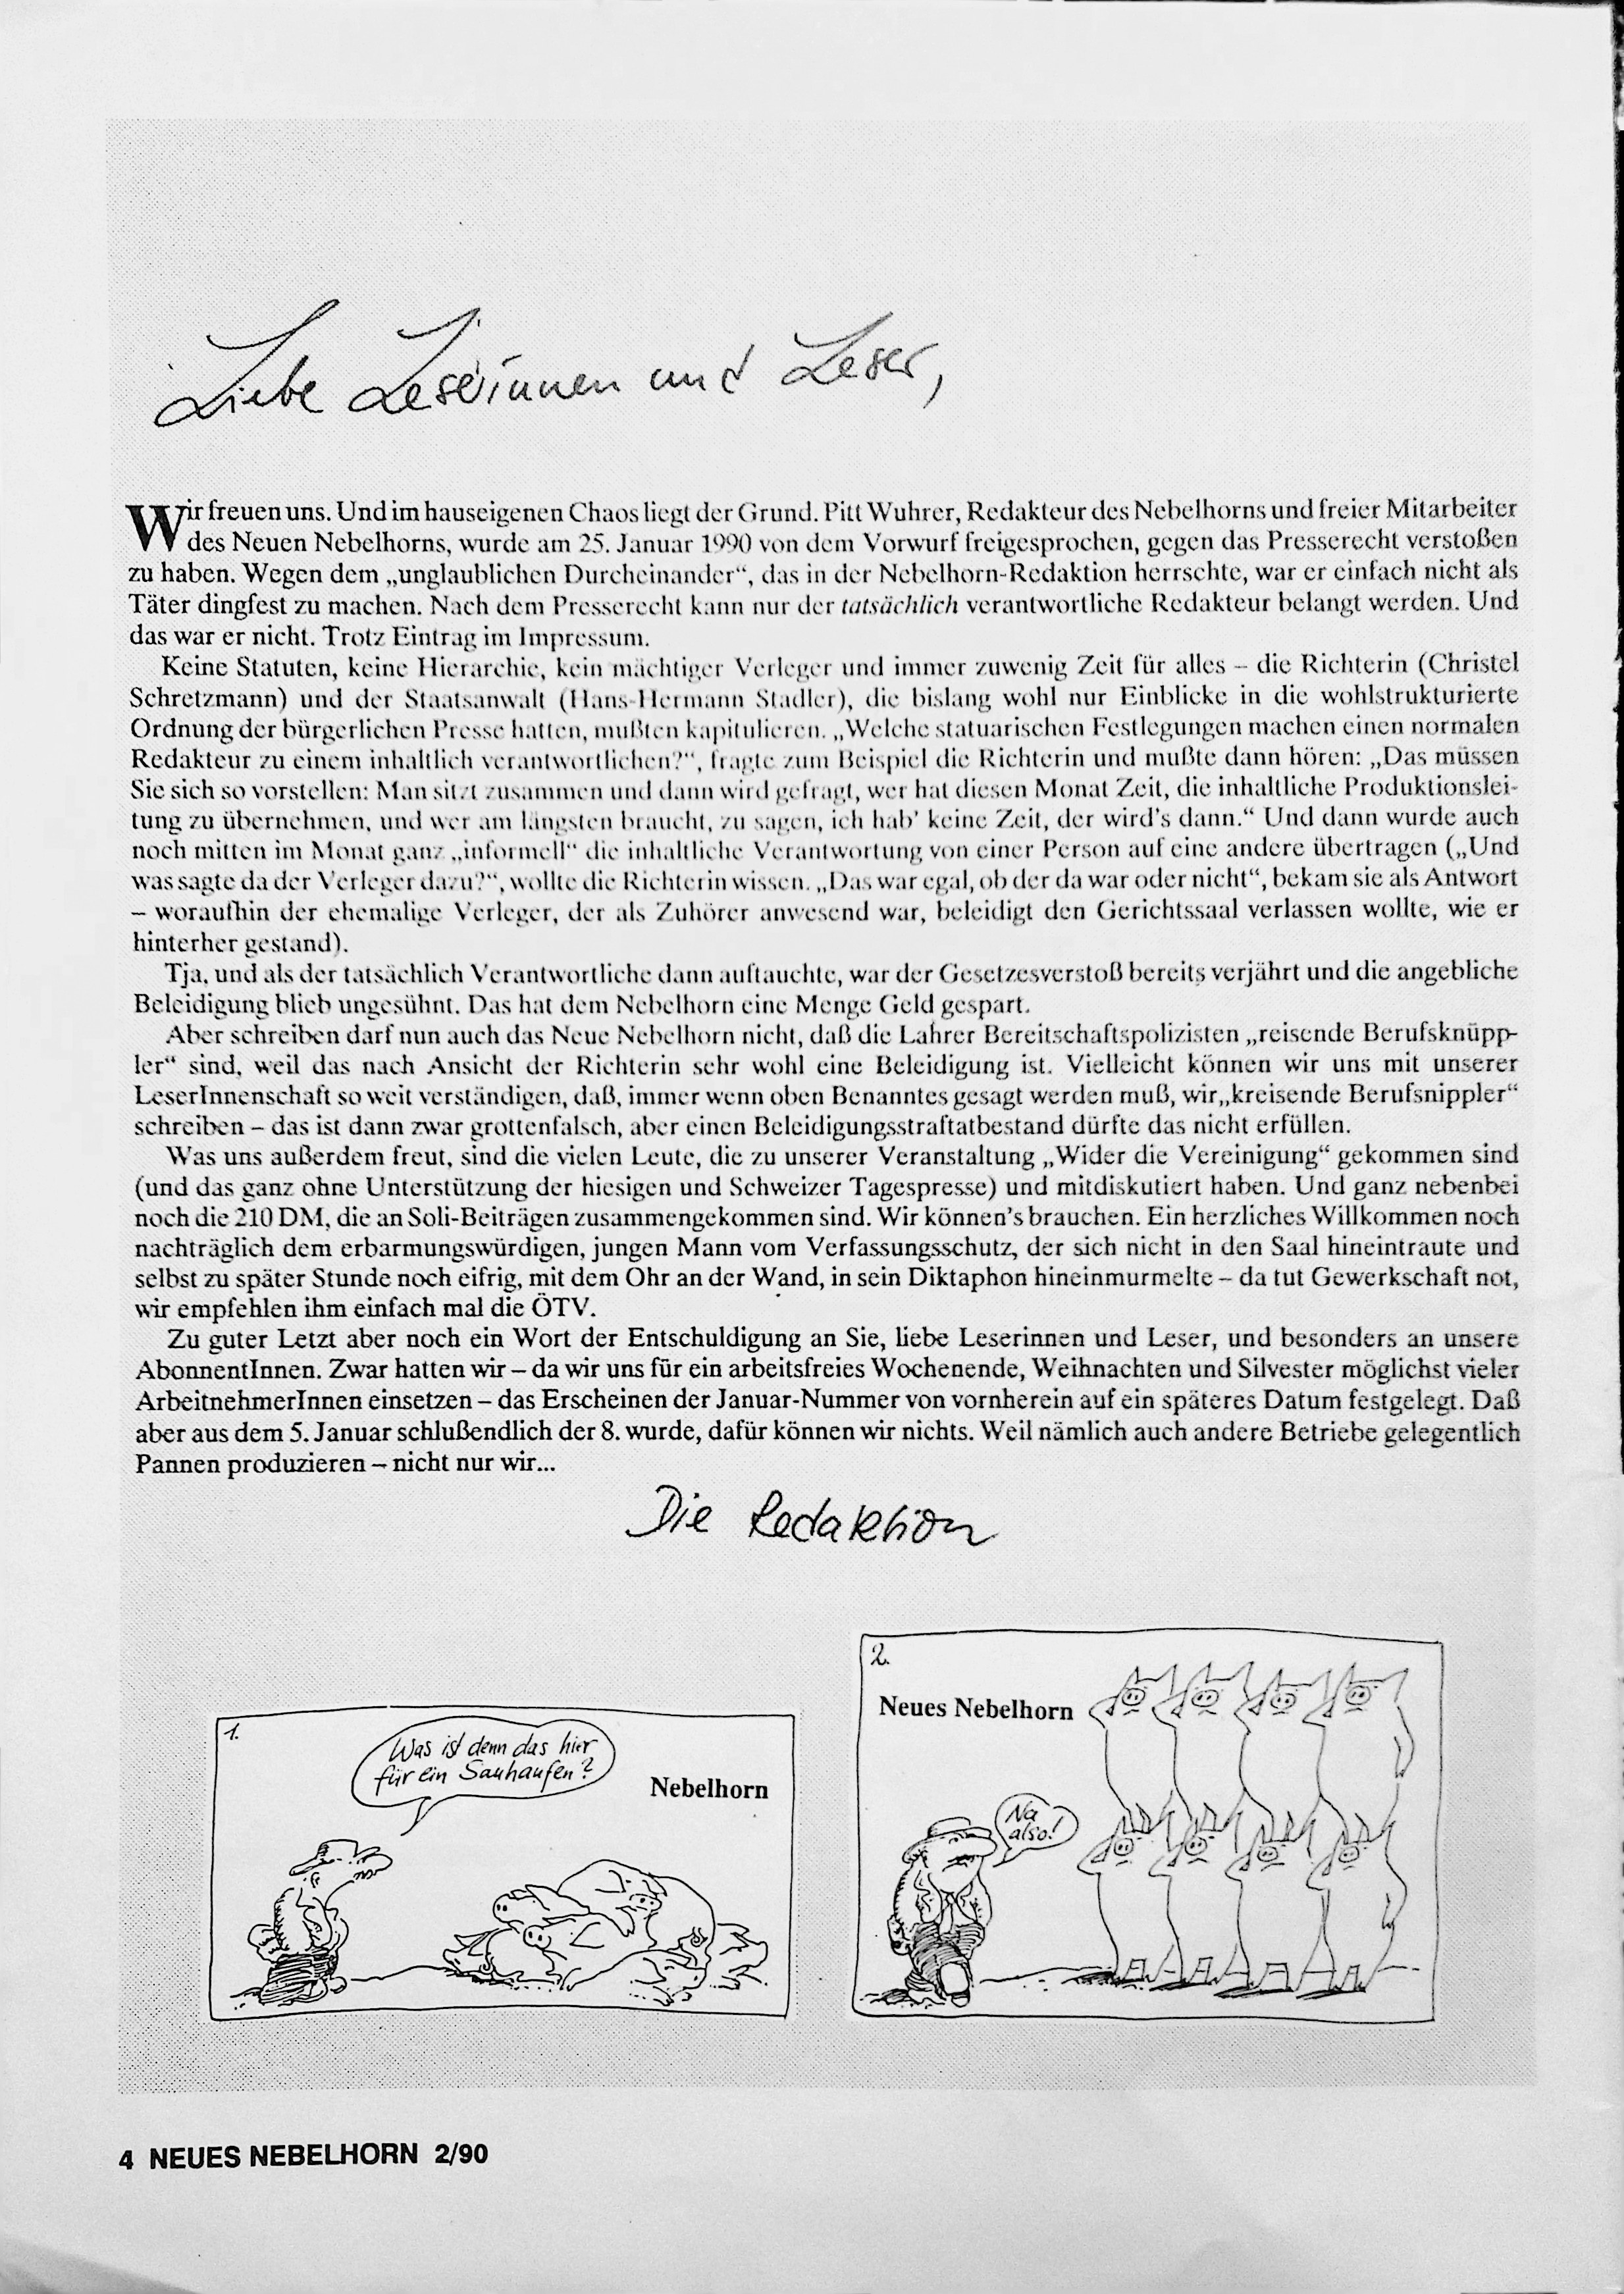 Liebe Leserinnen und Leser,
Wir freuen uns. Und im hauseigenen Chaos liegt der Grund. Pitt Wuhrer, Redakteur des Nebelhorns und freier Mitarbeiter
des Neuen Nebelhorns, wurde am 25. Januar 1990 von dem Vorwurf freigesprochen, gegen das Presserecht verstoßen
zu haben. Wegen dem „unglaublichen Durcheinander“, das in der Nebelhorn-Redaktion herrschte, war er einfach nicht als
Täter dingfest zu machen. Nach dem Presserecht kann nur der tatsächlich verantwortliche Redakteur belangt werden. Und
das war er nicht. Trotz Eintrag im Impressum.
Keine Statuten, keine Hierarchie, kein mächtiger Verleger und immer zuwenig Zeit für alles – die Richterin (Christel
Schretzmann) und der Staatsanwalt (Hans-Hermann Stadler), die bislang wohl nur Einblicke in die wohlstrukturierte
Ordnung der bürgerlichen Presse hatten, mußten kapitulieren. „Welche statuarischen Festlegungen machen einen normalen
Redakteur zu einem inhaltlich verantwortlichen?“, fragte zum Beispiel die Richterin und mußte dann hören: „Das müssen
Sie sich so vorstellen: Man sitzt zusammen und dann wird gefragt, wer hat diesen Monat Zeit, die inhaltliche Produktionslei-
tung zu übernehmen, und wer am längsten braucht, zu sagen, ich hab’ keine Zeit, der wird’s dann.“ Und dann wurde auch
noch mitten im Monat ganz „informell“ die inhaltliche Verantwortung von einer Person auf eine andere übertragen („Und
was sagte da der Verleger dazu?“, wollte die Richterin wissen. „Das war egal, ob der da war oder nicht“, bekam sie als Antwort
– woraufhin der ehemalige Verleger, der als Zuhörer anwesend war, beleidigt den Gerichtssaal verlassen wollte, wie er
hinterher gestand).
Tja, und als der tatsächlich Verantwortliche dann auftauchte, war der Gesetzesverstoß bereits verjährt und die angebliche
Beleidigung blieb ungesühnt. Das hat dem Nebelhorn eine Menge Geld gespart.
Aber schreiben darf nun auch das Neue Nebelhorn nicht, daß die Lahrer Bereitschaftspolizisten „reisende Berufsknüpp-
ler“ sind, weil das nach Ansicht der Richterin sehr wohl eine Beleidigung ist. Vielleicht können wir uns mit unserer
LeserInnenschaft so weit verständigen, daß, immer wenn oben Benanntes gesagt werden muß, wir„kreisende Berufsnippler“
schreiben – das ist dann zwar grottenfalsch, aber einen Beleidigungsstraftatbestand dürfte das nicht erfüllen.
Was uns außerdem freut, sind die vielen Leute, die zu unserer Veranstaltung „Wider die Vereinigung“ gekommen sind
(und das ganz ohne Unterstützung der hiesigen und Schweizer Tagespresse) und mitdiskutiert haben. Und ganz nebenbei
noch die 210 DM, die an Soli-Beiträgen zusammengekommen sind. Wir können’s brauchen. Ein herzliches Willkommen noch
nachträglich dem erbarmungswürdigen, jungen Mann vom Verfassungsschutz, der sich nicht in den Saal hineintraute und
selbst zu später Stunde noch eifrig, mit dem Ohr an der Wand, in sein Diktaphon hineinmurmelte – da tut Gewerkschaft not,
wir empfehlen ihm einfach mal die ÖTV.
Zu guter Letzt aber noch ein Wort der Entschuldigung an Sie, liebe Leserinnen und Leser, und besonders an unsere
AbonnentInnen. Zwar hatten wir – da wir uns für ein arbeitsfreies Wochenende, Weihnachten und Silvester möglichst vieler
ArbeitnehmerInnen einsetzen – das Erscheinen der Januar-Nummer von vornherein auf ein späteres Datum festgelegt. Daß
aber aus dem 5. Januar schlußendlich der 8. wurde, dafür können wir nichts. Weil nämlich auch andere Betriebe gelegentlich
Pannen produzieren – nicht nur wir...
Die Redaktion
1.
Was ist denn das hier
für ein Sauhaufen?
Nebelhorn
2.
Neues Nebelhorn
Na
also!
4 NEUES NEBELHORN 2/90